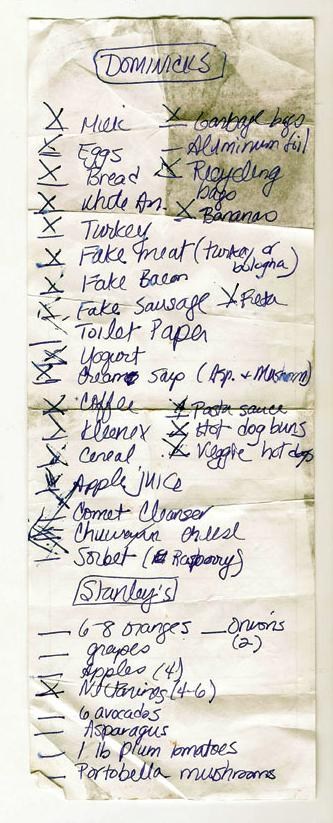 DOMINICKS
Milk
Garbage bags
Eggs
Aluminum foil
Bread
Recycling
bags
Whole An.
Bananas
Turkey
Fake meat (turkey or
bologna)
Fake Bacon
Fake Sausage
Feta
Toilet Paper
Yogurt
Cream soup (Asp. + Mushroom)
Coffee
Pasta sauce
Kleenex
Hot dog buns
Cereal
Veggie hot dogs
Apple juice
Comet Cleanser
cheese
Sorbet (Raspberry)
Stanley's
6-8 oranges
Onions
(2)
grapes
Apples (4)
Nectarines (4-6)
6 avocados
Asparagus
1 lb plum tomatoes
Portobella mushrooms